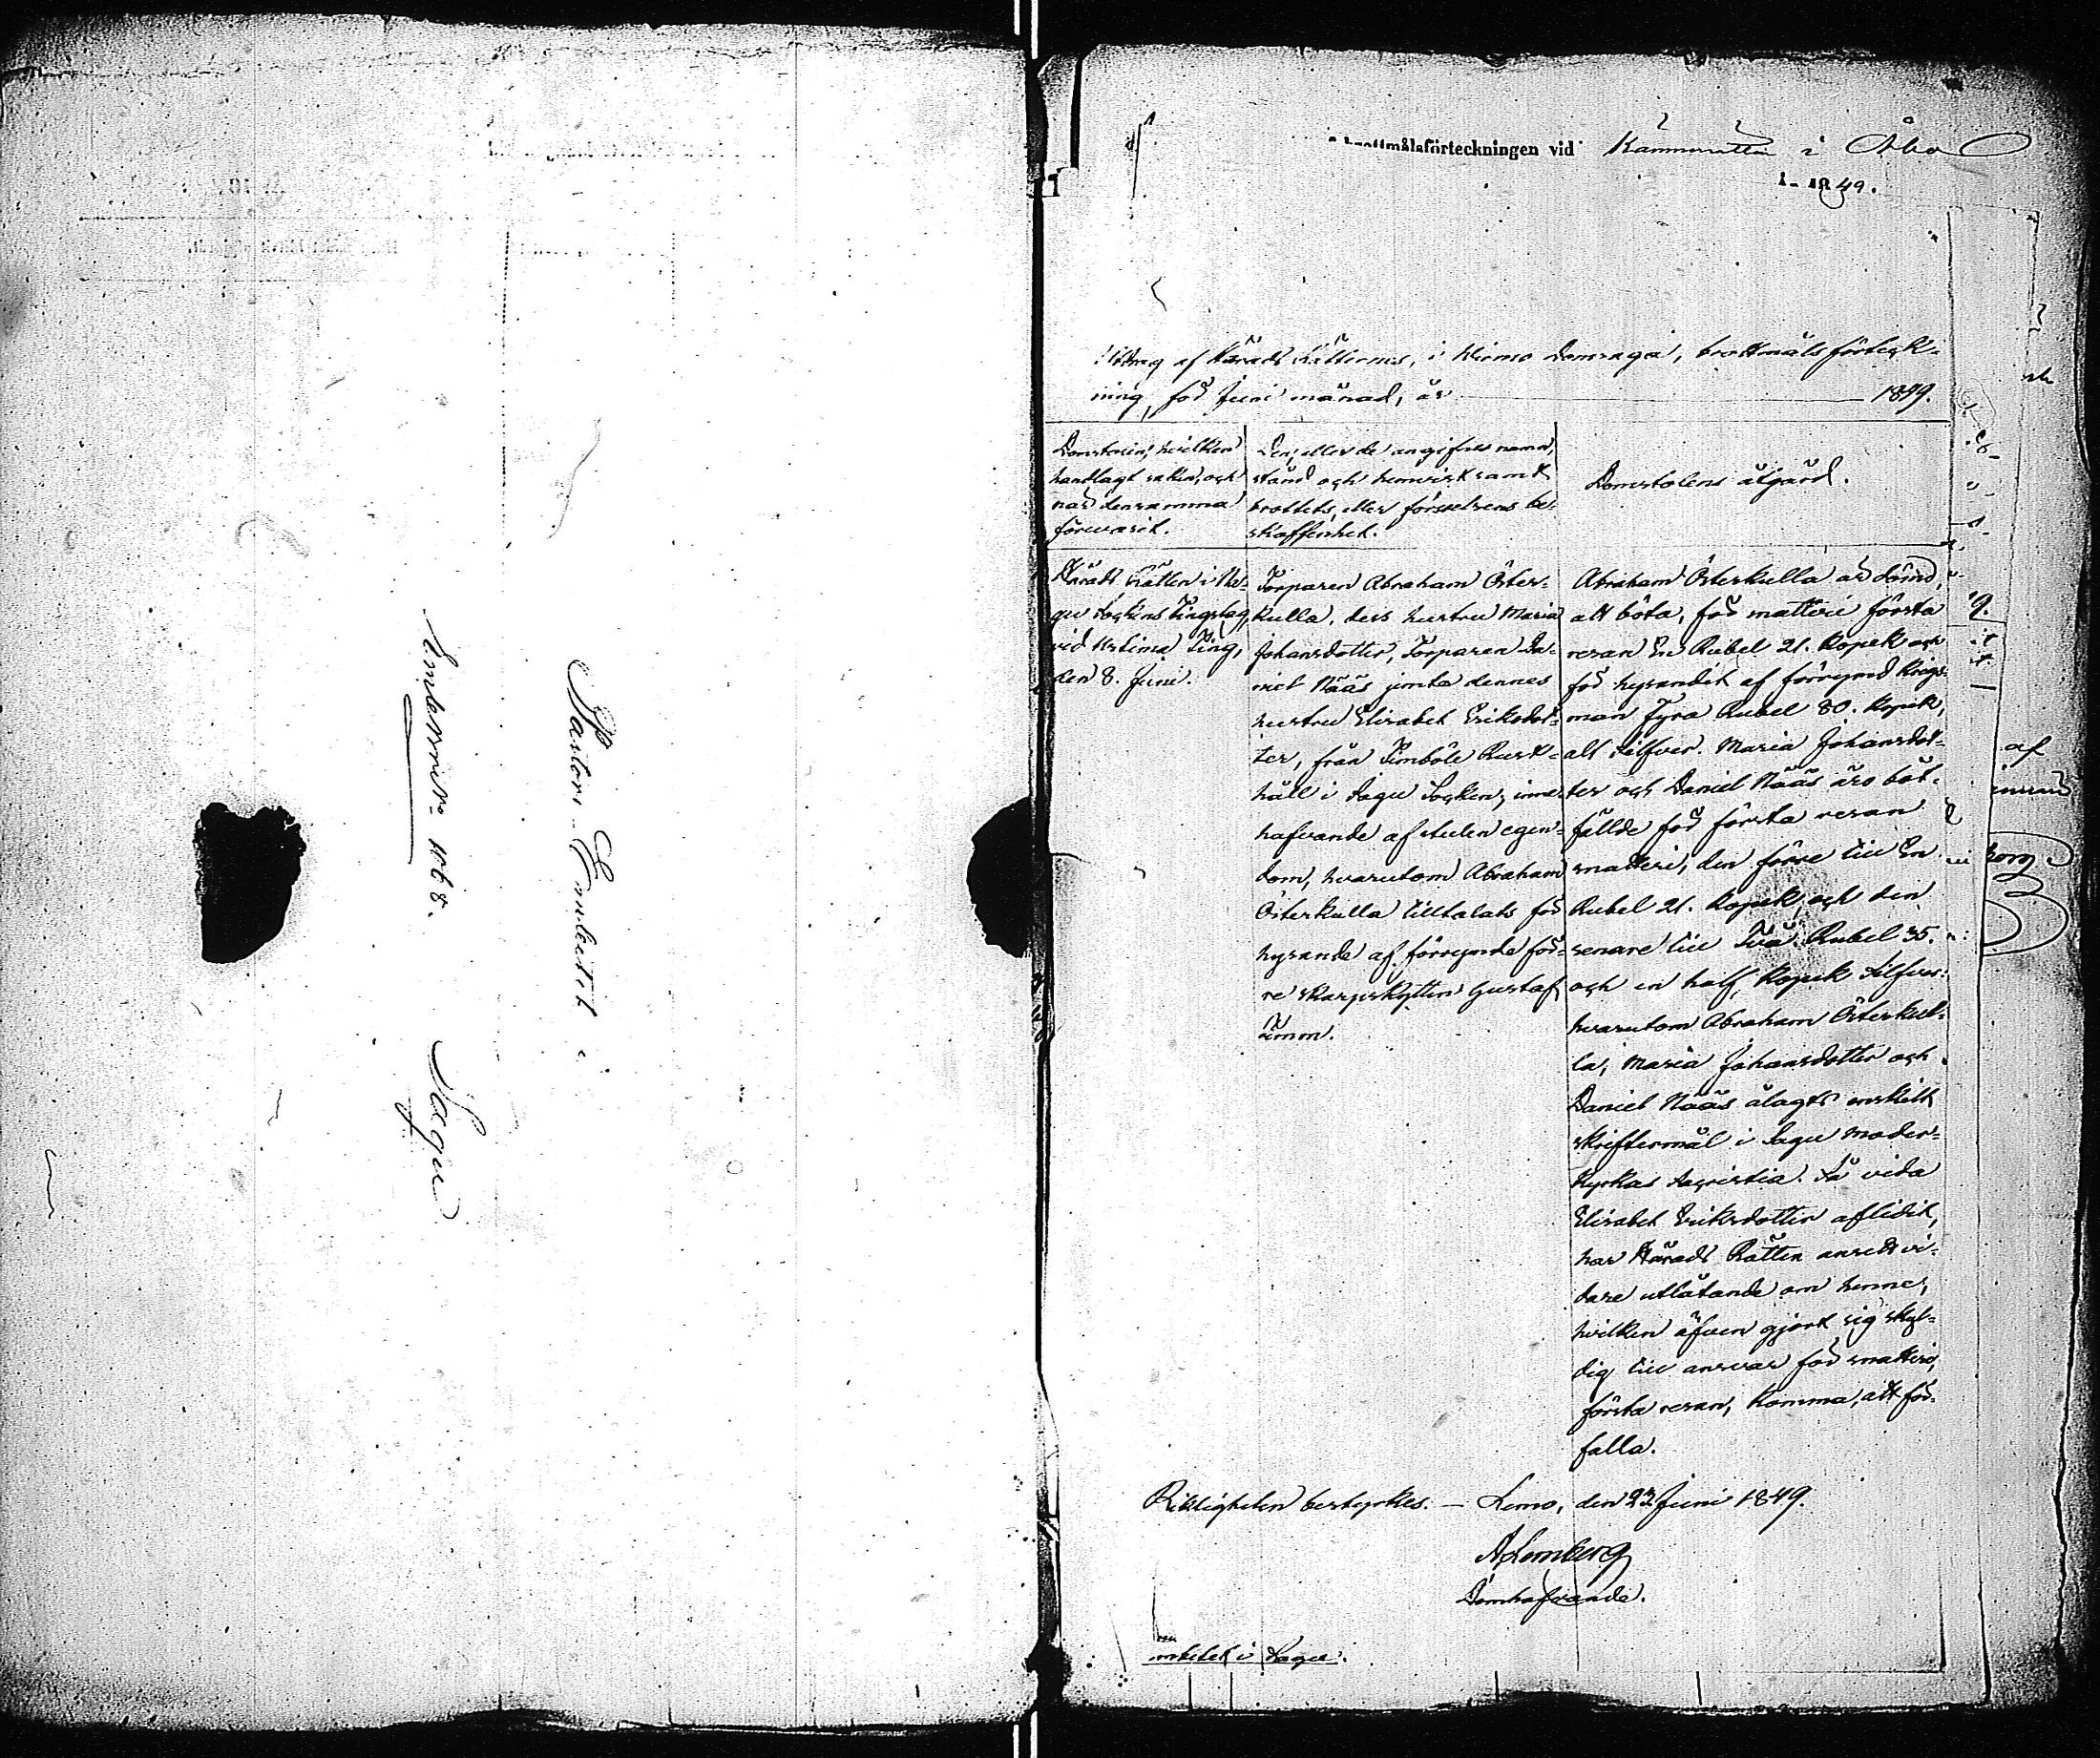 Pastors-Embetet
i
Sagu
Embetsresa No 68.
brottmålsförteckningen vid Kämnersrätten i Åbo
1849.
Utdrag af Härads Rätternes, i Wirmo Domsaga, brottmåls förteck-
ning, för Juni månad, år 1849.
Domstolen, hvilken
handlagt saken, och
när densamma
förevarit.
Den, eller de angifnes namn,
stånd och hemvist samt
brottets, eller förseelsens be-
skaffenhet.
Domstolens åtgärd.
Härads Rätten i Sa-
gu Sockens Tingslag,
vid Urtima Ting,
den 8. Juni.
Torparen Abraham Öster-
kulla, dess hustru Maria
Johansdotter, Torparen Da-
niel Nääs jemte dennes
hustru Elisabet Eriksdot-
ter, från Timböle Rust-
håll i Sagu Socken; inne-
hafvande af stulen egen-
dom, hvarutom Abraham
Österkulla tilltalats för
hysande af förrymde för-
re skarpskytten Gustaf
Lönn.
Abraham Österkulla är dömd,
att böta, för snatteri första
resan En Rubel 21. Kopek och
för hysandet af förrymd Krigs-
man Fyra Rubel 80. Kopek,
allt silfver. Maria Johansdot-
ter och Daniel Nääs äro böt-
fällde för första resan
snatteri, den förre till En
Rubel 21. Kopek, och den
senare till Två Rubel 35.
och en half, Kopek Silfver:
hvarutom Abraham Österkul-
la, Maria Johansdotter och
Daniel Nääs ålagts enskildt
skriftermål i Sagu Moder-
kyrkas Sacristia. Så vida
Elisabet Eriksdotter aflidit,
har Härads Rätten ansett vi-
dare utlåtande om henne,
hvilken äfven gjort sig skyl-
dig till ansvar för snatteri,
första resan, komma, att för-
falla.
Riktigheten bestyrkes. — Lemo, den 23 Juni 1849.
Domhafvande.
embetet i Sagu.
af